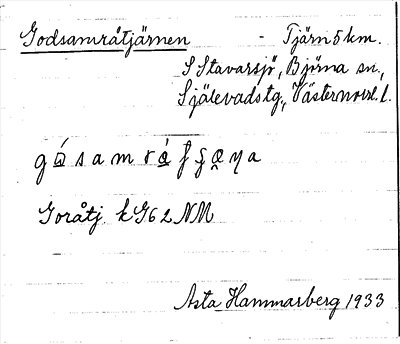 Godsamråtjärnen - Tjärn 5 km.
S Stavarsjö, Björna sn.,
Själevads tg., Västernorrl. l.
Goråtj. kG62NM
Asta Hammarberg 1933